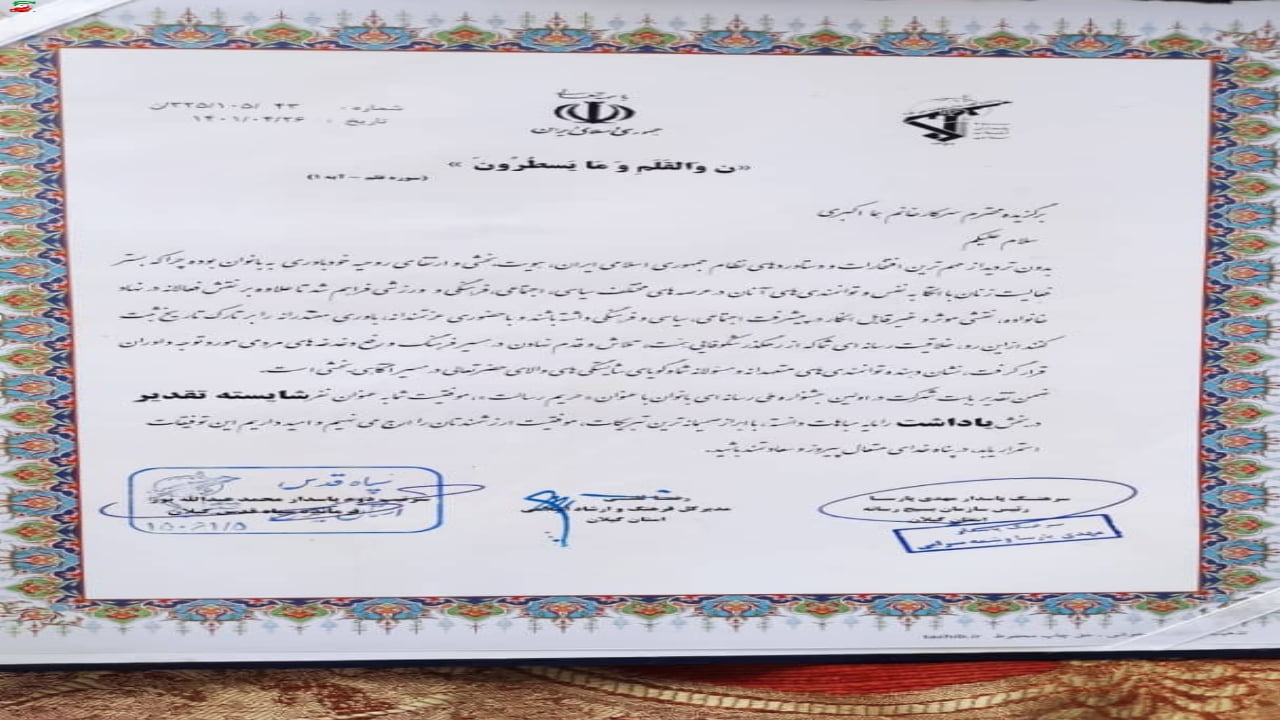 باسمه تعالی
جمهوری اسلامی ایران
شماره : ن/۳۲۵/۱۰۵/ ۴۳
تاریخ : ۱۴۰۱/۰۴/۲۶
«ن وَالقَلَمِ وَ مَا یَسطُرُونَ »
(سوره قلم – آیه ۱)
برگزیده محترم سرکار خانم هما اکبری
سلام علیکم
بدون تردید از مهم ترین افتخارات و دستاوردهای نظام جمهوری اسلامی ایران، هویت بخشی و ارتقای روحیه خودباوری به بانوان بوده چرا که بستر
فعالیت زنان با اتکا به نفس و توانمندی های آنان در عرصه های مختلف سیاسی، اجتماعی، فرهنگی و ورزشی فراهم شد تا علاوه بر نقش فعالانه در نهاد
خانواده، نقشی موثر و غیر قابل انکار در پیشرفت اجتماعی، سیاسی و فرهنگی داشته باشند و با حضوری عزتمندانه، باوری مقتدرانه را بر تارک تاریخ ثبت
کنند از این رو، خلاقیت رسانه ای شما که از رهگذر شکوفایی هنر، تلاش و قدم نهادن در مسیر فرهنگ و رفع دغدغه های مردمی مورد توجه داوران
قرار گرفت، نشان دهنده توانمندی های متعهدانه و مسئولانه شما و گویای شایستگی های والای حضرتعالی در مسیر آگاهی بخشی است.
ضمن تقدیر بابت شرکت در اولین جشنواره ملی رسانه ای بانوان با عنوان «حریم رسالت»، موفقیت شما به عنوان نفر شایسته تقدیر
در بخش یاداشت را مایه مباهات دانسته، با ابراز صمیمانه ترین تبریکات، موفقیت ارزشمندتان را ارج می نهیم و امید داریم این توفیقات
استمرار یابد، در پناه خدای متعال پیروز و سعادتمند باشید.
سرهنگ پاسدار مهدی پارسا
رئیس سازمان بسیج رسانه
استان گیلان
مدیرکل فرهنگ و ارشاد
استان گیلان
سپاه قدس
دوم پاسدار محمد عبدالله پور
فرمانده سپاه قدس گیلان